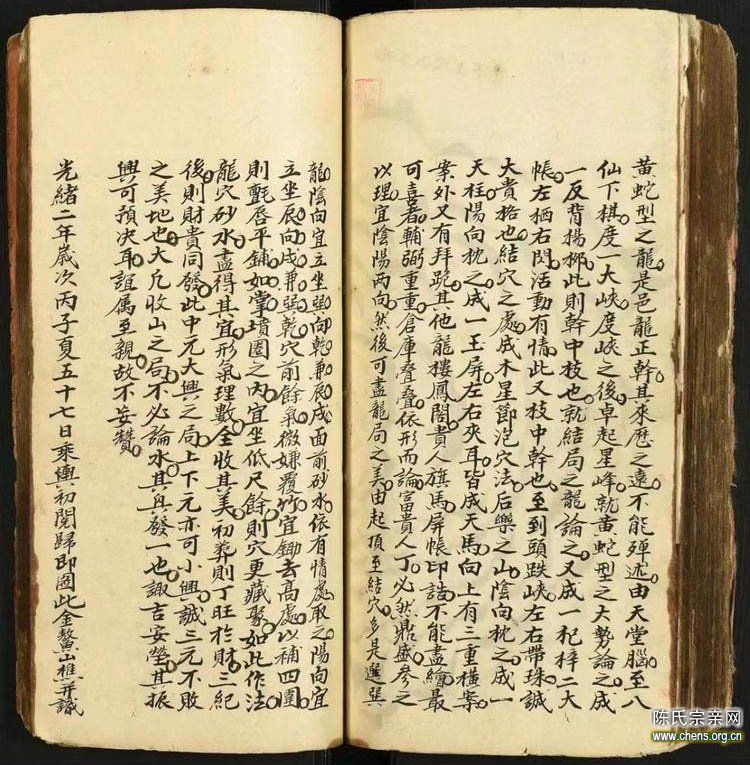 黄蛇型之龍是邑龍正幹其來歷之遠不能殫述由天堂腦至八
仙下棋度一大峽度峽之後卓起星峰就黄蛇型之大勢論之成
一反背揚梛此則幹中枝也就結局之龍論之又成一杞梓二大
帳左栖右閃活動有情此又枝中幹也至到頭跌峽左右帶珠誠
大貴格也結穴之處成木星節泡穴法后樂之山陰向枕之成一
天柱陽向枕之成一玉屏左右夾耳皆成天馬向上有三重橫案
案外又有拜跪其他龍樓鳳閣貴人旗馬屏帳印誥不能盡繪最
可喜者輔弼重重倉庫叠叠依形而論富貴人丁必然鼎盛參之
以理宜陰陽兩向然後可盡龍局之美由起頂至結穴多是選巽
龍陰向宜立坐巽向乾兼辰戌面前砂水依有情處取之陽向宜
立坐辰向戌兼巽乾穴前餘氣微嫌覆竹宜鋤去高處以補四圍
則氈唇平鋪如掌墳圈之内宜坐低尺餘則穴更藏聚如此作法
龍穴砂水盡得其宜形氣理數全收其美初葬則丁旺於財三紀
後則財貴同發此中元大興之局上下元亦可小興誠三元不敗
之美地也大凢收山之局不必論水其興發一也諏吉安塋其振
興可預决耳誼属至親故不妄贊
光緒二年歲次丙子夏五十七日乘輿初閱歸即圖此金鰲山樵并識
陈氏宗亲网
www.chens.org.cn